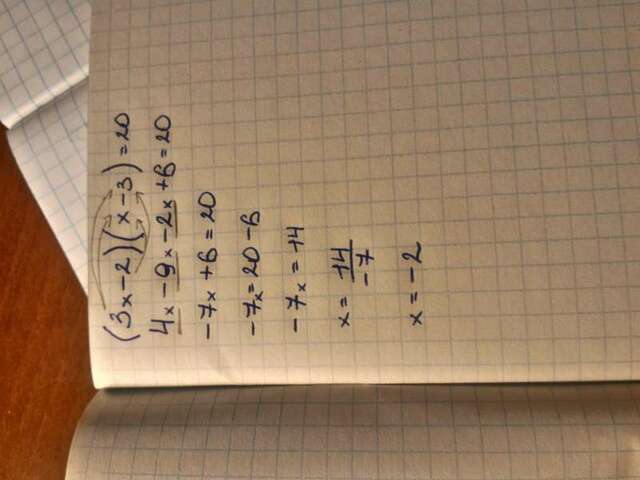 (3x-2)(x-3)=20
4x-9x-2x+6=20
-7x+6=20
-7x=20-6
-7x=14
x=14/-7
x=-2